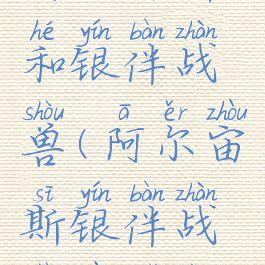 hé yín bàn zhàn
和银伴战
shòu ā ěr zhòu
兽(阿尔宙
sī yín bàn zhàn
斯银伴战